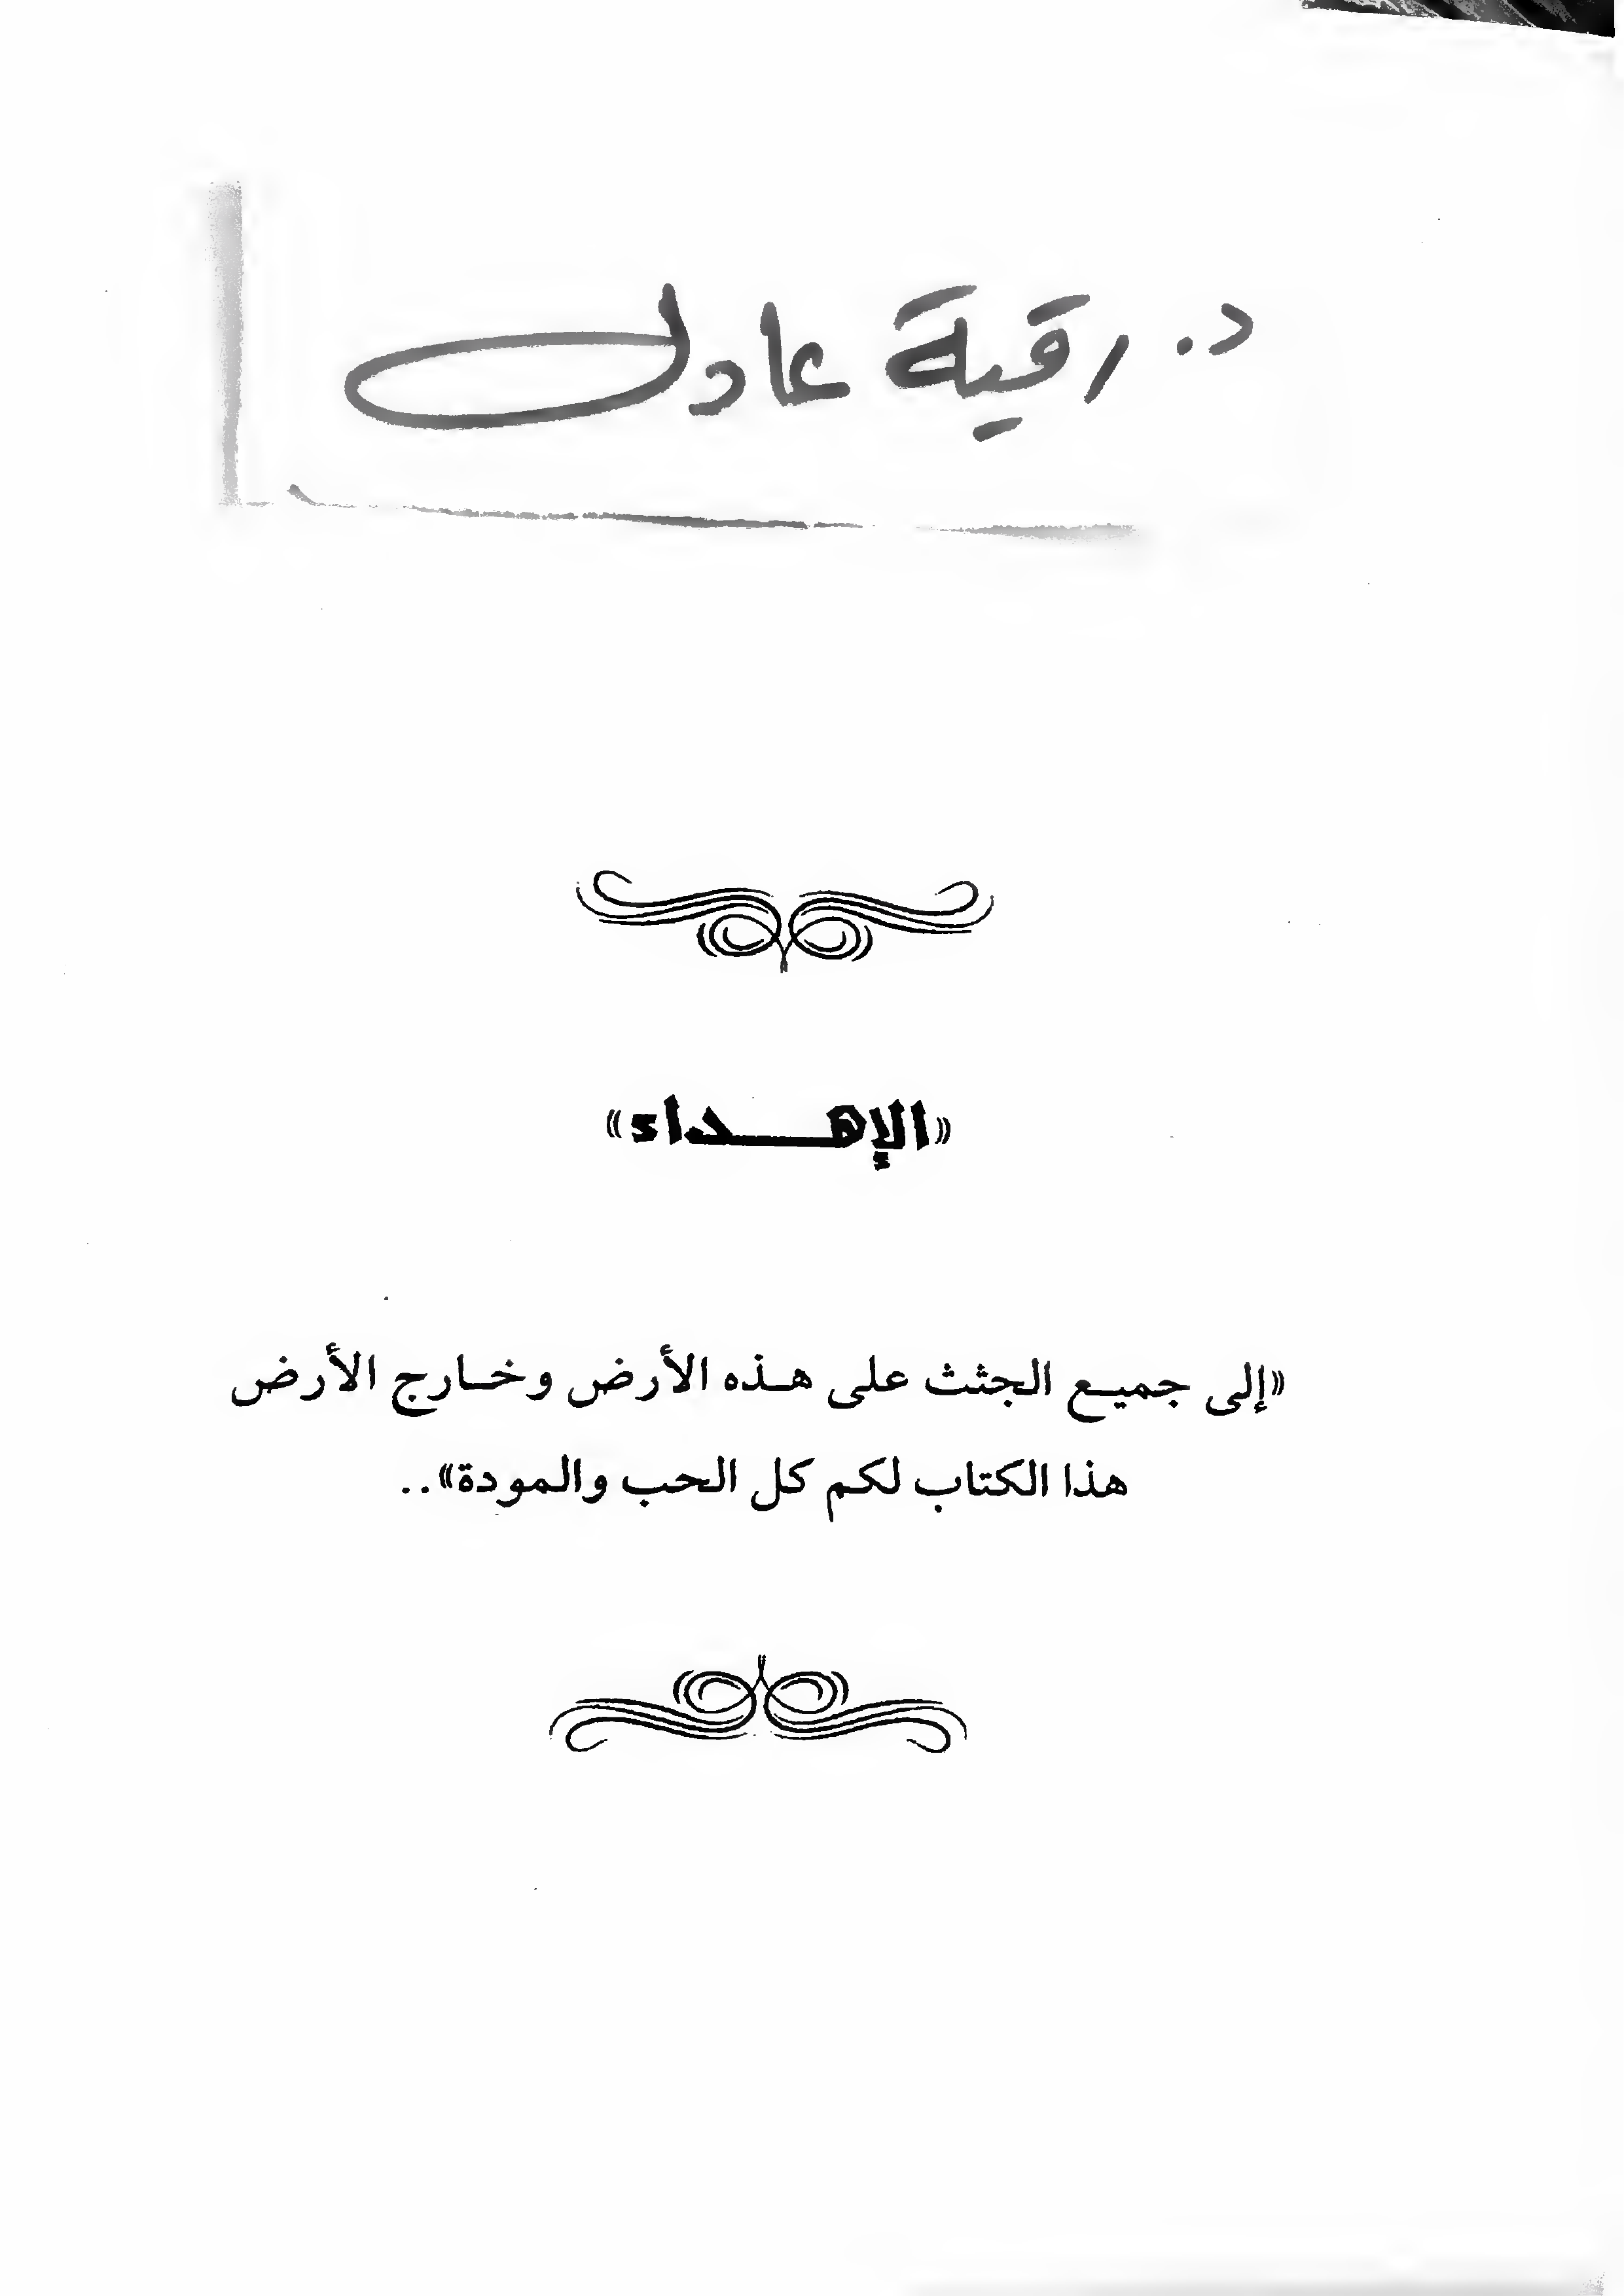 د. رقية عادل
«الإهـــداء»
«إلى جميـع الجثث على هـذه الأرض وخـارج الأرض
هذا الكتاب لكم كل الحب والمودة»..